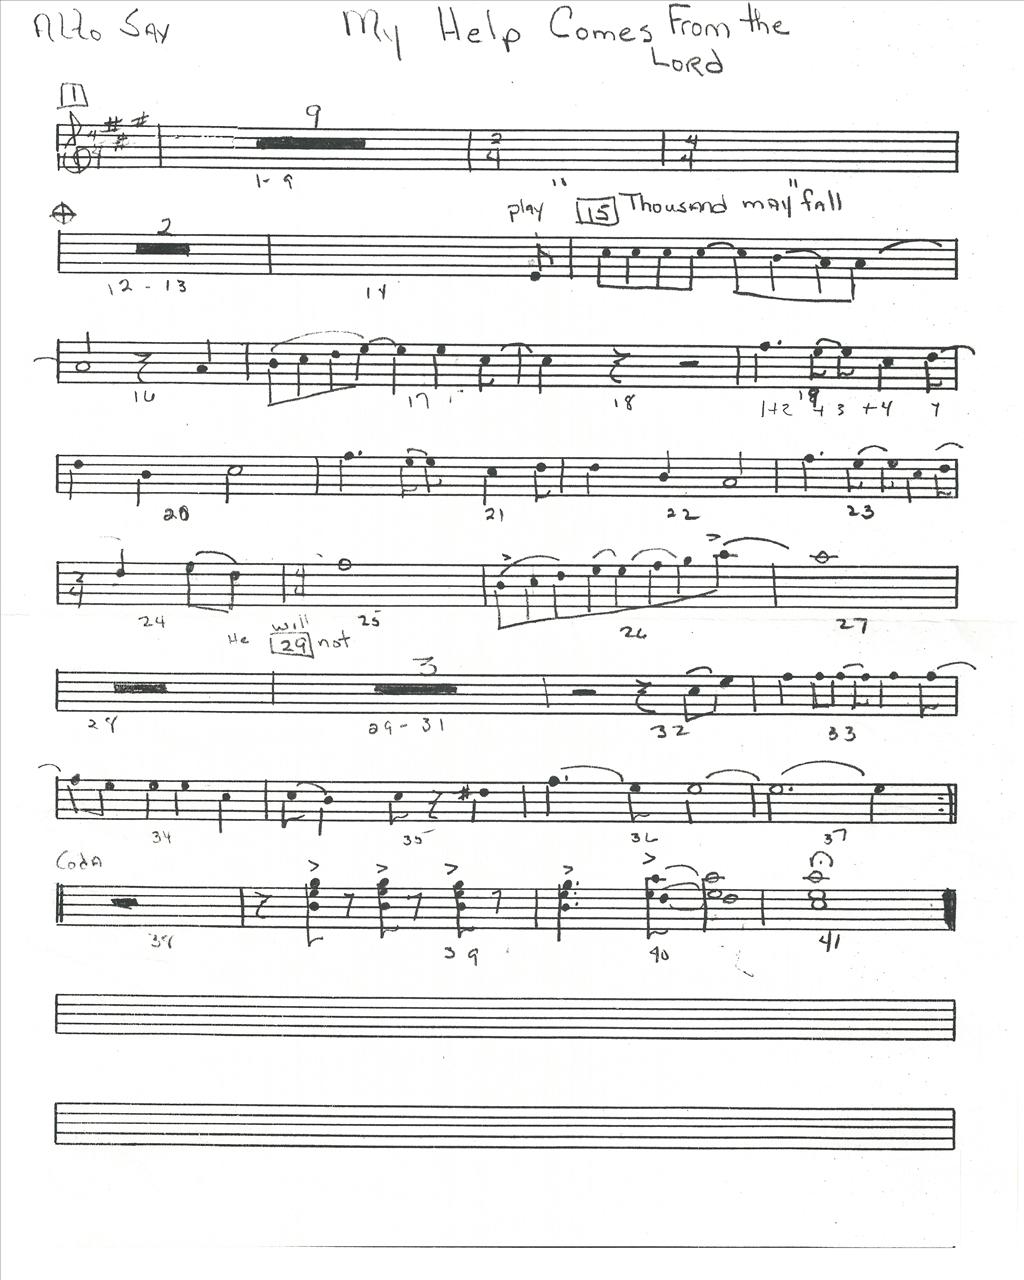 Alto Sax
My Help Comes From the
Lord
1
4
4
9
2
4
4
4
1-9
play
15
Thousand may "fall"
2
12 - 13
14
16
17
18
1+2 + 3 +4
19
20
21
22
23
2
4
4
4
24
25
26
27
He will not
29
3
28
29 - 31
32
33
34
35
36
37
Coda
38
39
40
41